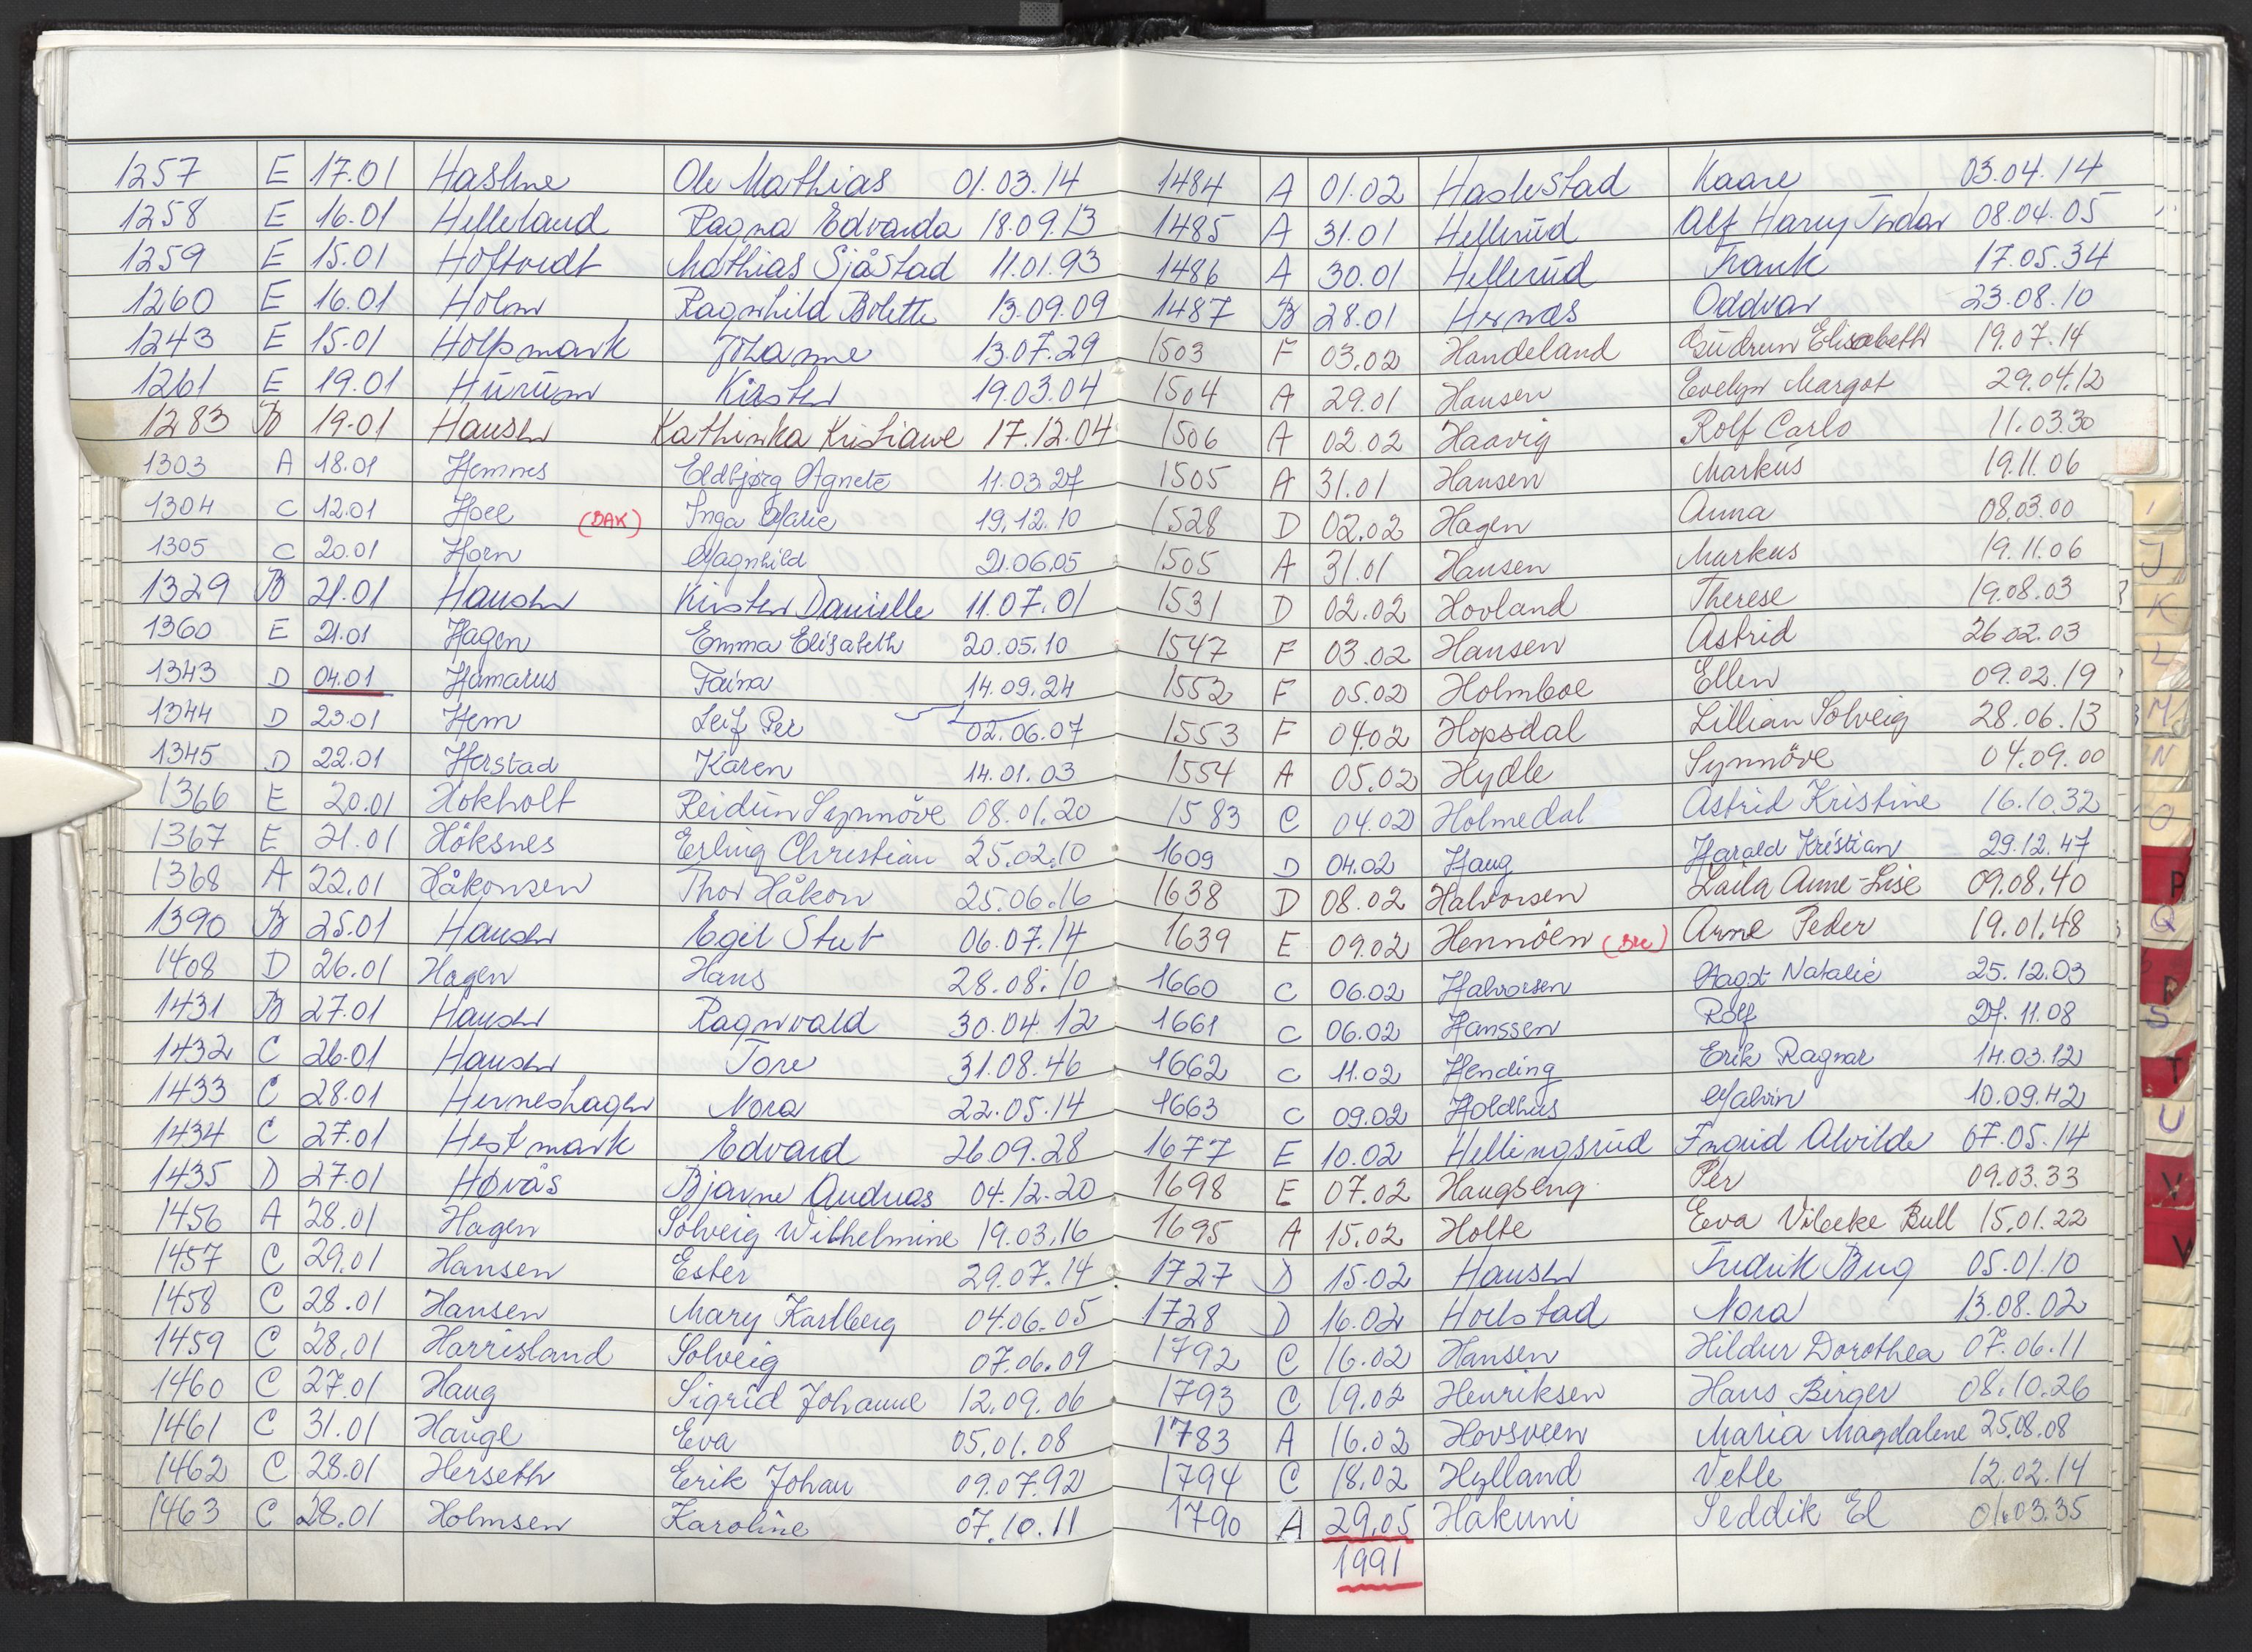 1257 E 17.01 Haslene Ole Mathias 01.03.14
1258 E 16.01 Helleland Ragna Edvarda 18.09.13
1259 E 15.01 Hoftvedt Mathias Sjåstad 11.01.93
1260 E 16.01 Holm Ragnhild Bolette 13.09.09
1243 E 15.01 Holpsmark Johanne 13.07.29
1261 E 19.01 Hurum Kirsten 19.03.04
1283 B 19.01 Hansen Kathinka Kristiane 17.12.04
1303 A 18.01 Hemnes Eldbjørg Agnete 11.03.27
1304 C 12.01 Hoel (BAK) Inga Marie 19.12.10
1305 C 20.01 Horn Magnhild 21.06.05
1329 B 21.01 Hansen Kirsten Danielle 11.07.01
1360 E 21.01 Hagen Emma Elisabeth 20.05.10
1343 D 04.01 Hamarus Taina 14.09.24
1344 D 23.01 Hem Leif Per 02.06.07
1345 D 22.01 Herstad Karen 14.01.03
1366 E 20.01 Hokholt Reidun Synnöve 08.01.20
1367 E 21.01 Höksnes Erling Christian 25.02.10
1368 A 22.01 Håkonsen Thor Håkon 25.06.16
1390 B 25.01 Hansen Egil Stub 06.07.14
1408 D 26.01 Hagen Hans 28.08.10
1431 B 27.01 Hansen Ragnvald 30.04.12
1432 C 26.01 Hansen Tore 31.08.46
1433 C 28.01 Herneshagen Nora 22.05.14
1434 C 27.01 Hestmark Edvard 26.09.28
1435 D 27.01 Høvås Bjarne Andreas 04.12.20
1456 A 28.01 Hagen Solveig Wilhelmine 19.03.16
1457 C 29.01 Hansen Ester 29.07.14
1458 C 28.01 Hansen Mary Karlberg 04.06.05
1459 C 28.01 Harrisland Solveig 07.06.09
1460 C 27.01 Haug Sigrid Johanne 12.09.06
1461 C 31.01 Hauge Eva 05.01.08
1462 C 28.01 Herseth Erik Johan 09.07.92
1463 C 28.01 Holmsen Karoline 07.10.11
1484 A 01.02 Haslestad Kaare 03.04.14
1485 A 31.01 Hellerud Alf Harry Tridar 08.04.05
1486 A 30.01 Hellerud Frank 17.05.34
1487 B 28.01 Hernæs Oddvar 23.08.10
1503 F 03.02 Handeland Gudrun Elisabeth 19.07.14
1504 A 29.01 Hansen Evelyn Margot 29.04.12
1506 A 02.02 Haavig Rolf Carlo 11.03.30
1505 A 31.01 Hansen Markus 19.11.06
1528 D 02.02 Hagen Anna 08.03.00
1505 A 31.01 Hansen Markus 19.11.06
1531 D 02.02 Hovland Therese 19.08.03
1547 F 03.02 Hansen Astrid 26.02.03
1552 F 05.02 Holmboe Ellen 09.02.19
1553 F 04.02 Hopsdal Lillian Solveig 28.06.13
1554 A 05.02 Hydle Synnöve 04.09.00
1583 C 04.02 Holmedal Astrid Kristine 16.10.32
1609 D 04.02 Haug Harald Kristian 29.12.47
1638 D 08.02 Halvorsen Laila Anne-Lise 09.08.40
1639 E 09.02 Hennöen Arne Peder 19.01.48
1660 C 06.02 Halvorsen Aagot Natalie 25.12.03
1661 C 06.02 Hanssen Rolf 27.11.08
1662 C 11.02 Hending Erik Ragnar 14.03.12
1663 C 09.02 Holdhus Malvin 10.09.42
1677 E 10.02 Hellingsrud Ingrid Alvilde 07.05.14
1698 E 07.02 Haugseng Per 09.03.33
1695 A 15.02 Holte Eva Vibeke Bull 15.01.22
1727 D 15.02 Hansen Fredrik Berg 05.01.10
1728 D 16.02 Holstad Nora 13.08.02
1792 C 16.02 Hansen Hildur Dorothea 07.06.11
1793 C 19.02 Henriksen Hans Birger 08.10.26
1783 A 16.02 Hovsveen Maria Magdalene 25.08.08
1794 C 18.02 Hylland Vetle 12.02.14
1790 A 29.05 Hakuni Seddik El 01.03.35
1991
J
K
L
M
N
O
P
Q
R
S
T
U
V